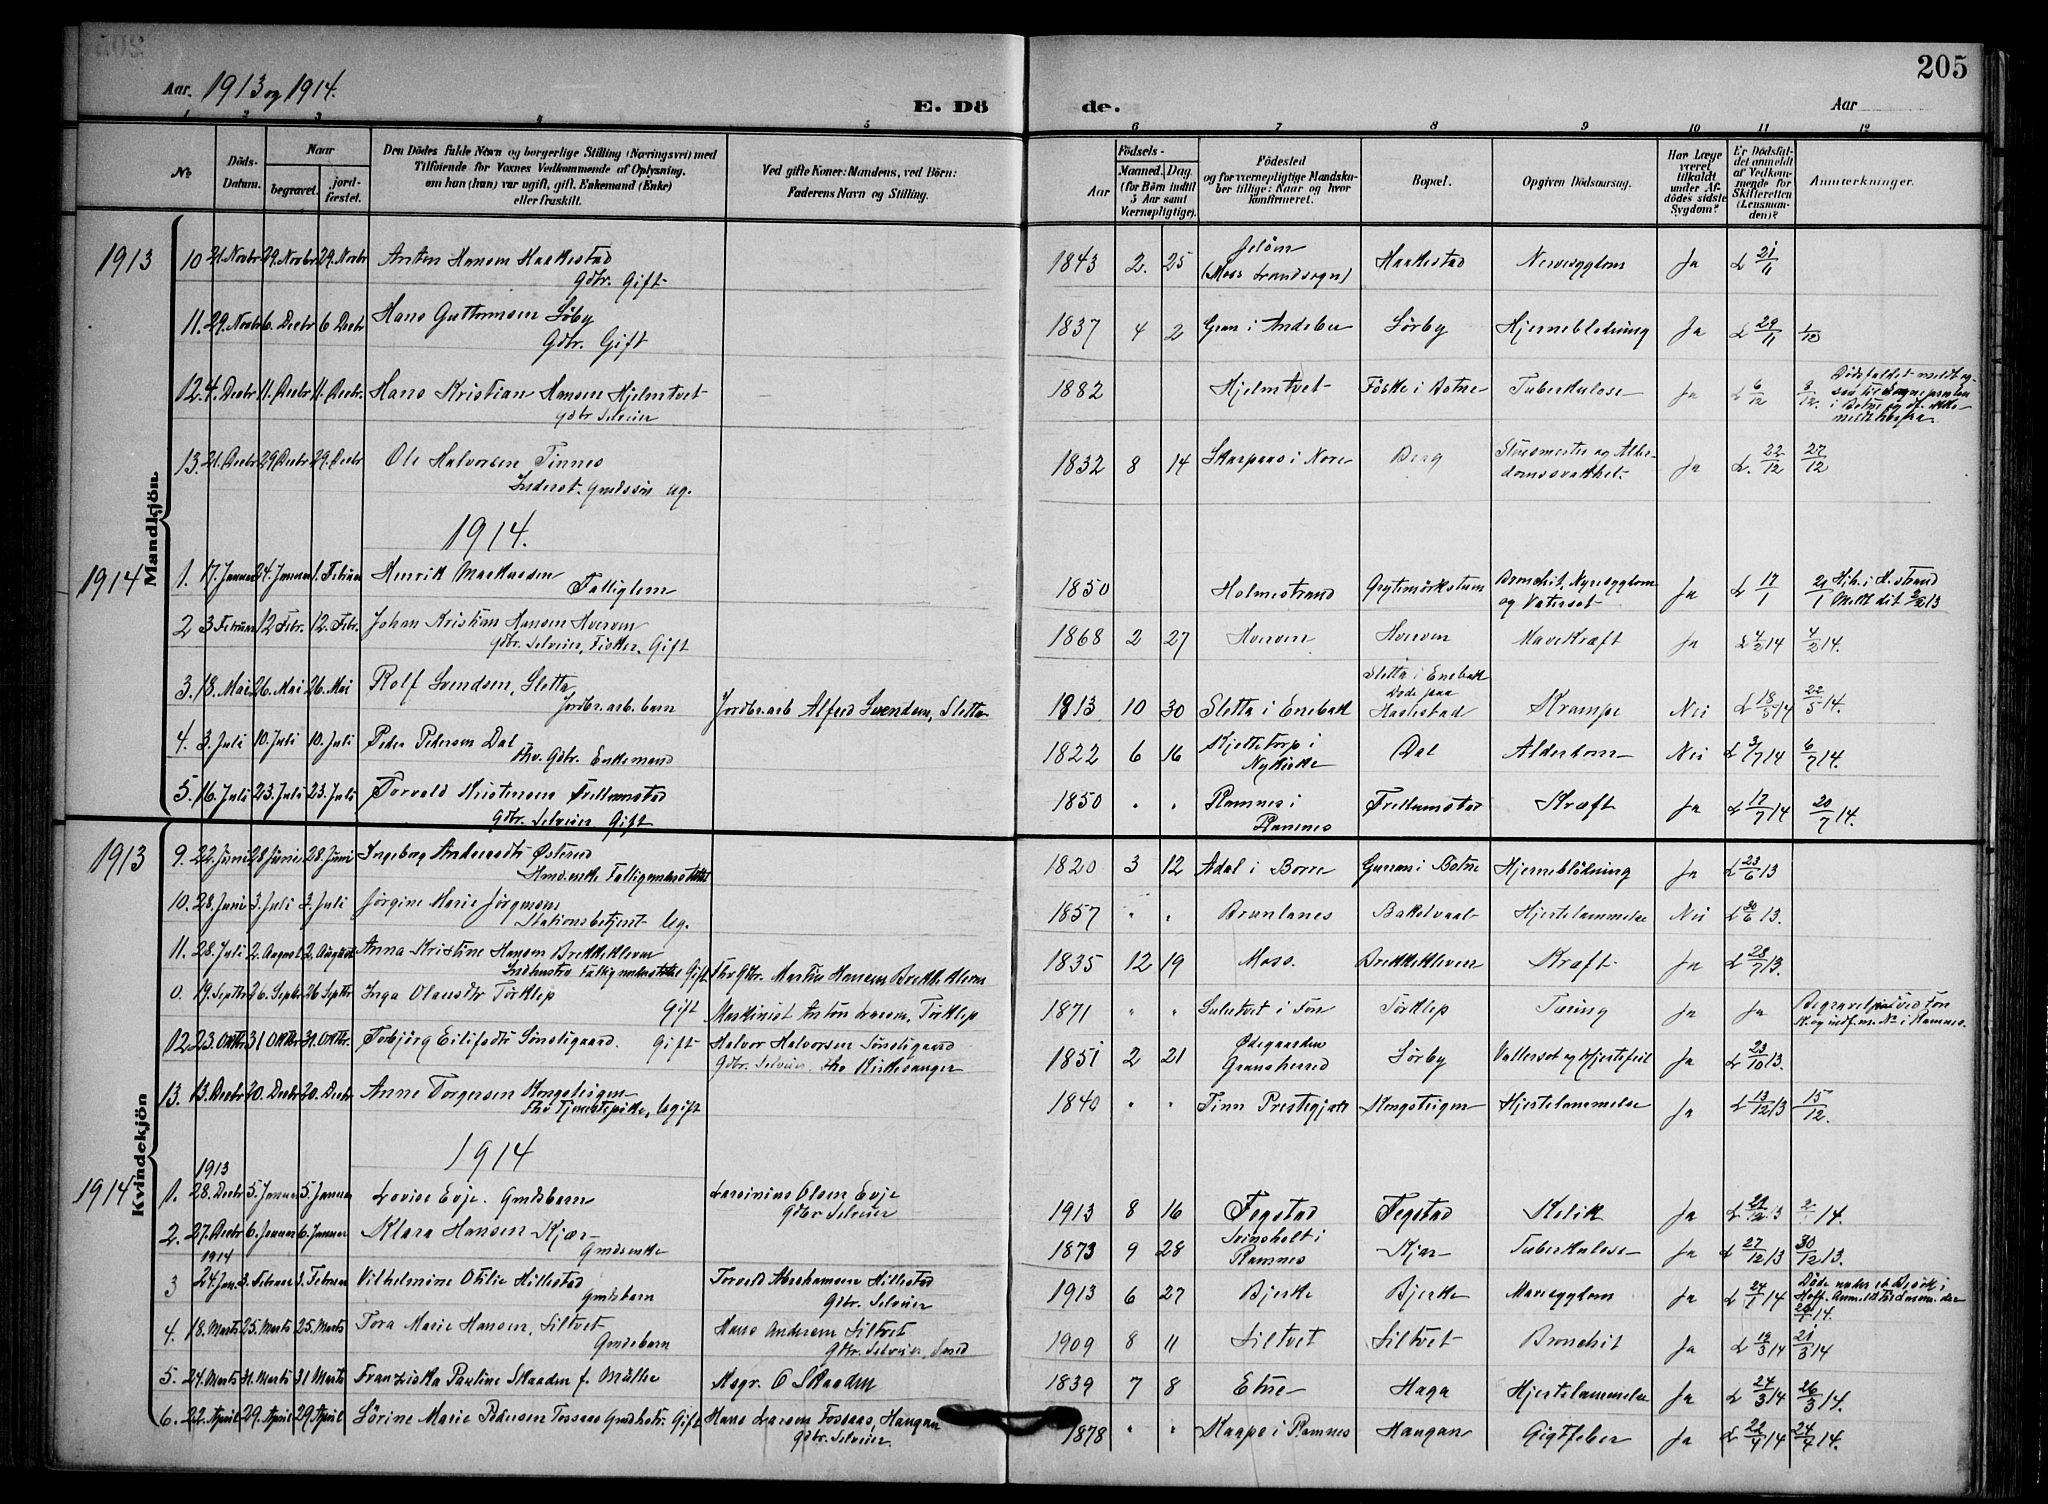 205
Aar. 1913 og 1914.
E. Dö
de.
Aar
1 2 3 4 5
6 7 8 9 10 11 12
No
Döds-Datum.
Naar
begravet.
jord-fæstet.
Den Dödes fulde Navn og borgerlige Stilling (Næringsvei) med
Tilföiende for Voxnes Vedkommende af Oplysning,
om han (hun) var ugift, gift, Enkemand (Enke)
eller fraskilt.
Ved gifte Koner: Mandens, ved Börn:
Faderens Navn og Stilling.
Födsels-
Aar
Maaned. Dag.
(for Börn indtil
5 Aar samt
Værnepligtige).
Födested
og for værnepligtige Mandska-
ber tillige: Naar og hvor
konfirmeret.
Bopæl.
Opgiven Dödsaarsag.
Har Læge
været
tilkaldt
under Af-
dödes sidste
Sygdom?
Er Dödsfal-
det anmeldt
af Vedkom-
mende for
Skifteretten
(Lensman-
den)?
Anmærkninger.
Mandkjön.
1913 10 21. Novbr 29. Novbr 29. Novbr Anton Hansen Haakestad 1843 2. 25 Jeløen Haakestad Nervesygdom Ja L 21/11
Gdbr. Gift (Moss Landsogn)
11. 29. Novbr 6. Decbr 6 Decbr Hans Guttormsen Søby 1837 4 2 Gran i Andebu Sørby Hjerneblødning Ja L 29/11 1/12
Gdbr. Gift
12. 4. Decbr 11. Decbr 11. Decbr. Hans Kristian Hansen Hjelmtvet 1882 Hjelmtvet i Botne Tuberkulose Ja L 6/12 8/12. Dødsfaldet meldt
Gdbr Selveier
13. 21. Decbr 29 Decbr 29. Decbr Ole Halvorsen Tinnes 1832 8 14 i Nore Berg og Alder-
domssvakhet. Ja L. 22/12 27/12
Inderst. Gmdssøn ug.
1914.
1914 1. 17. Januar 24. Januar 1. Februar Henrik Markussen 1850 Holmestrand Bronchit, Nyresygdom
og Vatersot Ja L 17/1 21/1
Fattiglem
2 3 Februar 12 Febr. 12. Febr. Johan Kristian Hansen Hverven 1868 2 27 Hverven Hverven Mavekræft Ja L 4/2 14 4/2 14.
Gdbr. Selveier, Fisker, Gift
3. 18. Mai 26. Mai 26. Mai Rolf Svendsen, Sletta Jordbr.arb Alfred Svendsen, Sletta 1913 10 30 Sletta i Enebak Sletta i Enebak
Døde paa
Haslestad Krampe Nei L 18/5 14 22/5 14.
Jordbr.arb. barn
4. 3. Juli 10. Juli 10. Juli Peder Pedersen Dal 1822 6 16 i
Nykirke Dal Alderdom Nei L 3/7 14 6/7 14.
Fhv. Gdbr. Enkemand
5. 16. Juli 23. Juli 23. Juli Torvald Kristensen 1850 " " Ramnes i
Ramnes Kræft Ja L 17/7 14 20/7 14.
Gdbr. Selveier Gift
Kvindekjön
1913 9. 22. Juni 28 Juni 28. Juni Ingeborg Andersdtr Østerud 1820 3 12 Adal i Borre i Botne Hjerneblödning Ja L 23/6 13
10. 28. Juni 3. Juli 3. Juli Jørgine Marie Jørgensen 1857 " " Brunlanes Hjertelammelse Nei L 30/6 13.
Stationsbetjent Ug.
11. 28. Juli 2. August 2. August Anna Kristine Hansen Brekkekleven Fhv Gdbr. Martin Hansen Brekkekleven 1835 12 19 Moss. Brekkekleven Kræft Ja L 28/7 13.
Gift
0. 19. Septbr 26. Septbr 26 Septbr Inga Olausdtr Torklep Maskinist Anton Larsen, Torklep 1871 " " i Fon Torklep Tæring Ja Ja
Gift
12 23. Oktbr 31 Oktbr 31. Oktbr. Torbjörg Eilifsdtr Sønstigaard. Gift Halvor Halvorsen Sønstigaard 1851 2 21 Ødegaarden
Gransherred Sørby Vattersot og Hjertefeil Ja L 23/10 13.
Gdbr. Selveier. Fhv Kirkesanger
13. 13. Decbr 20. Decbr 20. Decbr Anne Torgersen Kongsteigen 1840 " " Tinn Prestegjæld Kongsteigen Hjertelammelse Ja L 13/12 13 15/12.
Fhv Tjenestepike, Ugift
1914
1913
1914 1. 28. Decbr 5. Januar 5. Januar Lovise Evje. Gmdsbarn Olsen Evje 1913 8 16 Fegstad Fegstad Kolik Ja
Gdbr Selveier
2. 27. Decbr 6. Januar 6. Januar Klara Hansen Kjær 1873 9 28
Ramnes Kjær Tuberkulose Ja L 27/12 13 30/12 13.
Gmdsenke
1914
3 24. Jan. 3. Februar 3. Februar Vilhelmine Otilie Hillestad Torvald Abrahamsen Hillestad 1913 6 27 Bjerke Bjerke Mavesygdom Ja L 24/1 14 Døde under et Besøk i
Gmdsbarn Gdbr. Selveier
4. 18. Marts 25. Marts 25. Marts Tora Marie Hansen, Siltvet Hans Andersen Siltvet 1909 8 11 Siltvet Siltvet Bronchit Ja L 19/3 14 21/3 14
Gmdsbarn Gdbr. Selveier, Smed
5. 24. Marts 31. Marts 31 Marts Franziska Pauline Skaaden f. Müller Ksgr. O Skaaden 1839 7 8 Etne Haga Hjertelammelse Ja L 24/3 14 26/3 14.
6. 22. April 29. April 29 April Sørine Marie Pedersen Fossaas Gmdkstr. Gift Hans Larsen Fossaas, Haugan 1878 " " i Ramnes Haugan Gigtfeber Ja L 22/4 14 24/4 14.
Gdbr. Selveier.